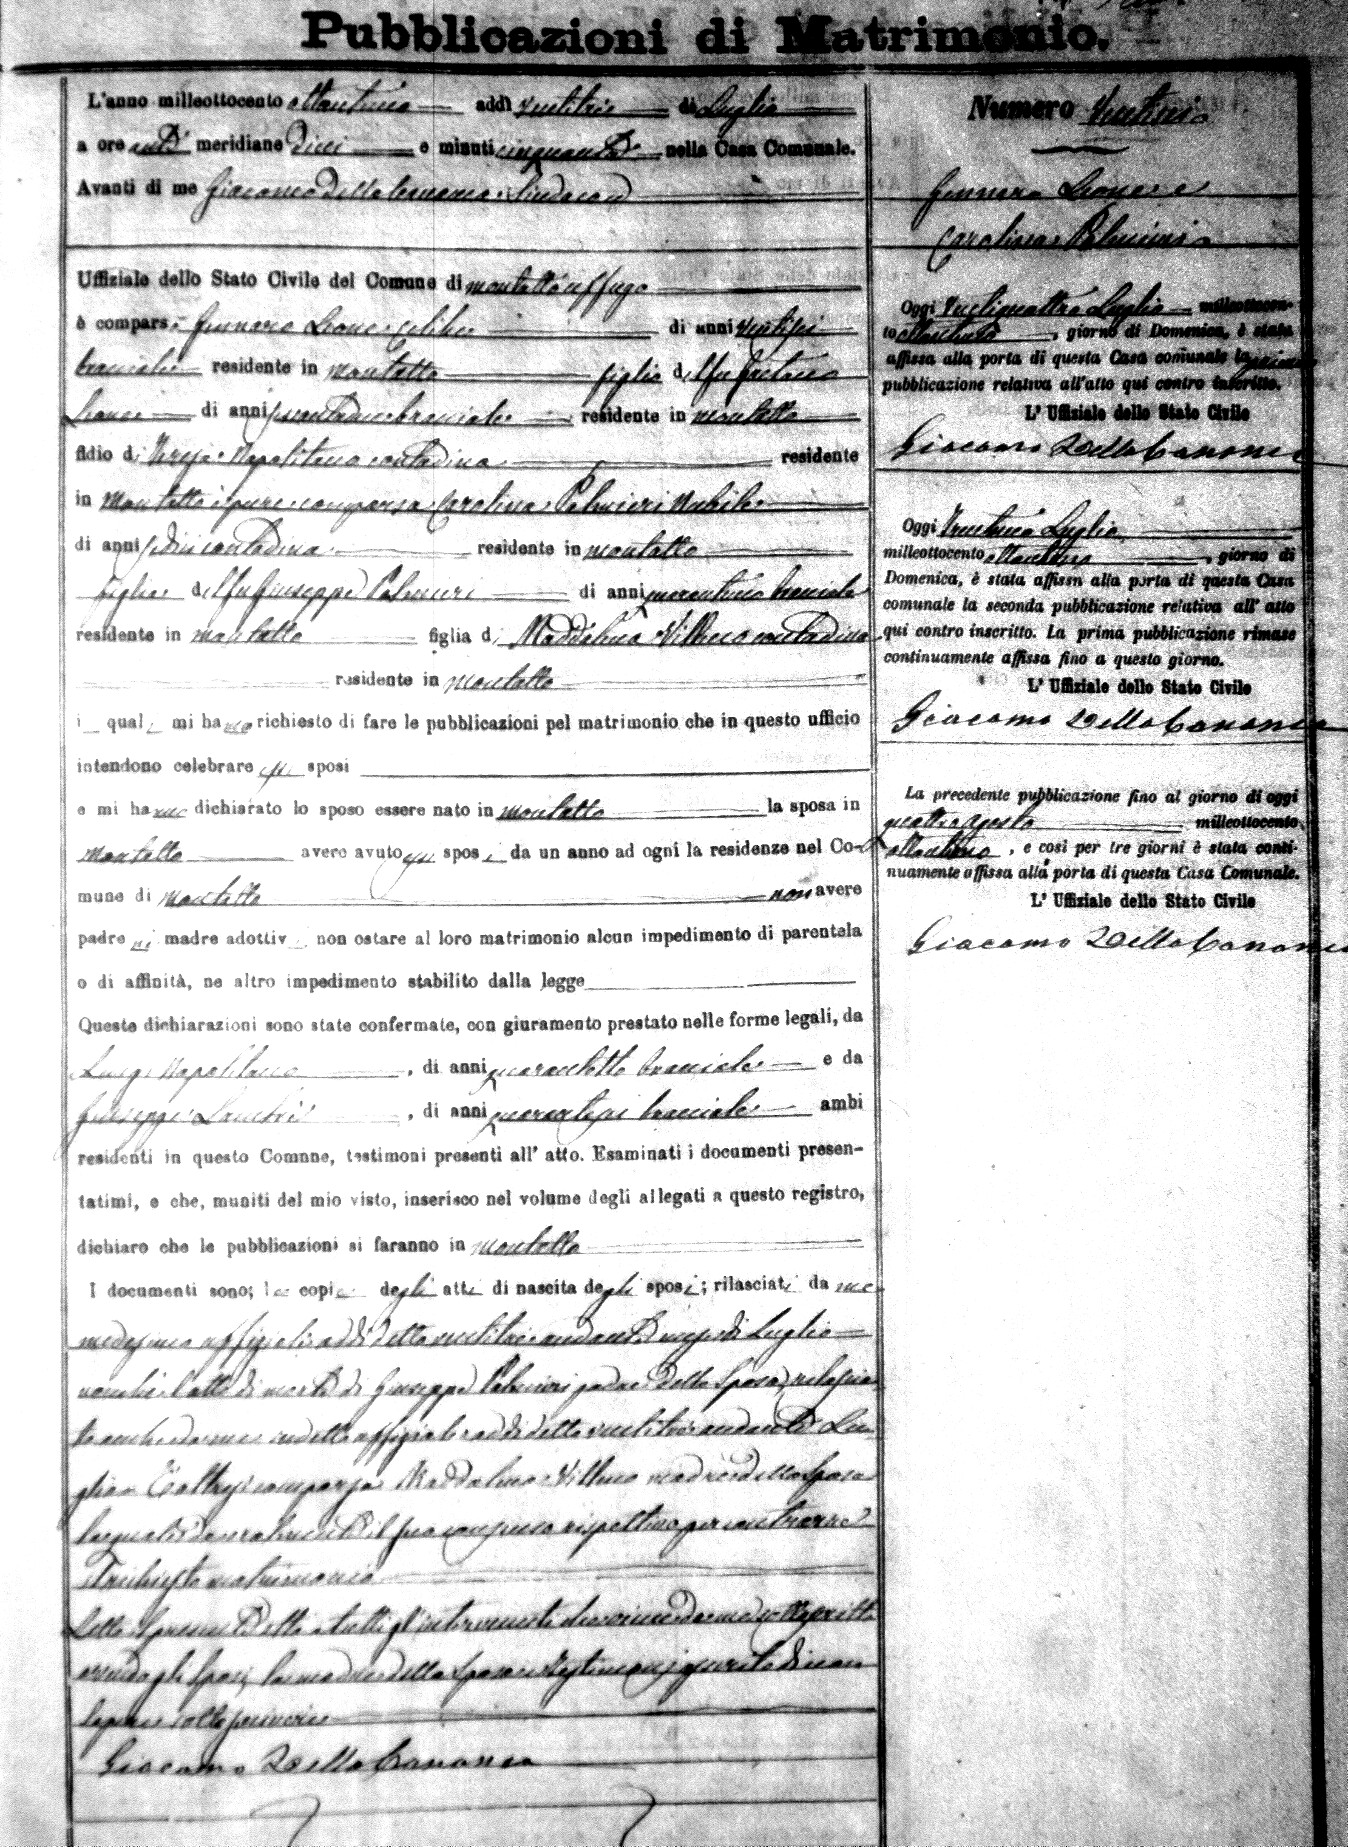 Pubblicazioni di Matrimonio.
L'anno milleottocento ottantuno addì ventitrè di Luglio
a ore anti meridiane dieci e minuti cinquanta nella Casa Comunale.
Avanti di me Giacomo Della Cananea Sindaco
Uffiziale dello Stato Civile del Comune di Montalto Uffugo
è compars Gennaro Leone celibe di anni ventisei
bracciale residente in Montalto figlio del fu
Leone di anni bracciale residente in Montalto
e di Napolitano contadina residente
in Montalto è pure comparsa Carolina Palmieri nubile
di anni sedici contadina residente in Montalto
figlia del fu Giuseppe Palmieri di anni quarantuno bracciale
residente in Montalto figlia di Maddalena contadina
residente in Montalto
i quali mi hanno richiesto di fare le pubblicazioni pel matrimonio che in questo ufficio
intendono celebrare essi sposi
e mi hanno dichiarato lo sposo essere nato in Montalto la sposa in
Montalto avere avuto essi sposi da un anno ad ogni la residenze nel Co-
mune di Montalto non avere
padre nè madre adottivi non ostare al loro matrimonio alcun impedimento di parentela
o di affinità, ne altro impedimento stabilito dalla legge
Queste dichiarazioni sono state confermate, con giuramento prestato nelle forme legali, da
Luigi Napolitano, di anni quarantotto bracciale e da
Giuseppe, di anni quarantasei bracciale ambi
residenti in questo Comune, testimoni presenti all' atto. Esaminati i documenti presen-
tatimi, e che, muniti del mio visto, inserisco nel volume degli allegati a questo registro,
dichiaro che le pubblicazioni si faranno in Montalto
I documenti sono; le copie degli atti di nascita degli sposi; rilasciati da me
medesimo uffiziale addì detto ventitrè andante mese di Luglio
nonchè l'atto di morte di Giuseppe Palmieri padre della sposa, rilascia
to anche da me uffiziale addì detto ventitrè andante Lu
glio. È altresì comparsa Maddalena madre della sposa
la quale il suo consenso rispettivo per contrarre
il richiesto matrimonio
Letto il presente atto a tutti gl'intervenuti da me sottoscritto
avendo gli sposi, la madre della sposa e testimoni di non
sapere sottoscrivere
Giacomo Della Cananea
Numero Ventisei
Gennaro Leone e
Carolina Palmieri
Oggi Ventiquattro Luglio milleottocen-
to ottantuno, giorno di Domenica, è stata
affissa alla porta di questa Casa comunale la prima
pubblicazione relativa all'atto qui contro inscritto.
L' Uffiziale dello Stato Civile
Giacomo Della Cananea
Oggi Trentuno Luglio
milleottocento ottantuno, giorno di
Domenica, è stata affissa alla porta di questa Casa
comunale la seconda pubblicazione relativa all' atto
qui contro inscritto. La prima pubblicazione rimase
continuamente affissa fino a questo giorno.
L' Uffiziale dello Stato Civile
Giacomo Della Cananea
La precedente pubblicazione fino al giorno di oggi
quattro Agosto milleottocento
ottantuno, e così per tre giorni è stata conti-
nuamente affissa alla porta di questa Casa Comunale.
L' Uffiziale dello Stato Civile
Giacomo Della Cananea